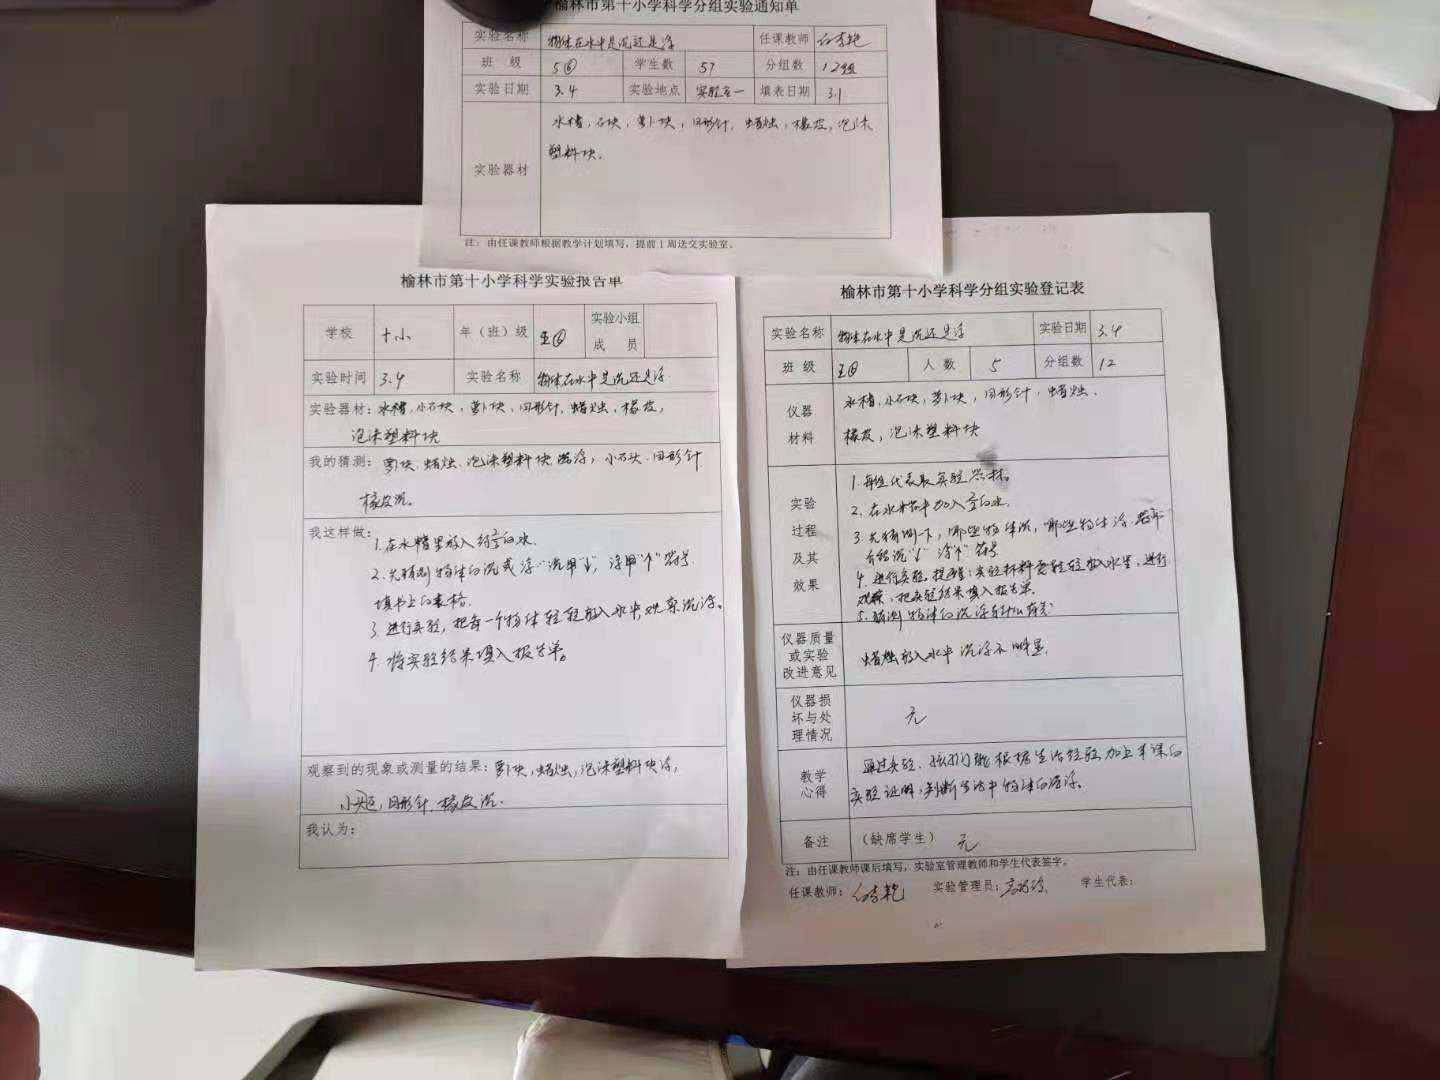 榆林市第十小学科学分组实验通知单
实验名称 物体在水中是沉还是浮 任课教师
班 级 5⑥ 学生数 57 分组数 12组
实验日期 3.4 实验地点 实验室一 填表日期 3.1
实验器材 水槽,石块,萝卜块,回形针,蜡烛,橡皮,泡沫
塑料块.
注:由任课教师根据教学计划填写,提前1周送交实验室。
榆林市第十小学科学实验报告单
学校 十小 年(班)级 五⑥ 实验小组
成 员
实验时间 3.4 实验名称 物体在水中是沉还是浮.
实验器材:水槽,小石块,萝卜块,回形针,蜡烛,橡皮,
泡沫塑料块
我的猜测:萝卜块,蜡烛.泡沫塑料块 浮,小石头.回形针
橡皮沉。
我这样做:
1.在水槽里放入约 的水.
2.先猜测物体的沉或浮"沉用"↓",浮用"↑"符号.
填书上的表格.
3.进行实验,把每一个物体轻轻放入水中,观察沉浮。
4.将实验结果填入报告单。
观察到的现象或测量的结果:萝卜块,蜡烛,泡沫塑料块浮,
回形针,橡皮沉.
我认为:
榆林市第十小学科学分组实验登记表
实验名称 物体在水中是沉还是浮 实验日期 3.4
班 级 五⑥ 人 数 5 分组数 12
仪器
材料
水槽,小石块,萝卜块,回形针,蜡烛.
橡皮,泡沫塑料块
实验
过程
及其
效果
1.每组代表取实验器材。
2.在水槽中加入 的水.
3.先猜测一下,哪些物体沉,哪些物体浮.
沉"↓" 浮"↑"符号
4.进行实验.提醒:实验材料要轻轻放入水里,进行
观察,把实验结果填入报告单.
5.猜测物体的沉浮与什么有关
仪器质量
或实验
改进意见
蜡烛放入水中沉浮不明显.
仪器损
坏与处
理情况
无
教学
心得
通过实验.孩子们能根据生活经验加上本课的
实验证明,判断生活中物体的沉浮.
备注 (缺席学生) 无
注:由任课教师课后填写,实验室管理教师和学生代表签字。
任课教师: 实验管理员: 学生代表: